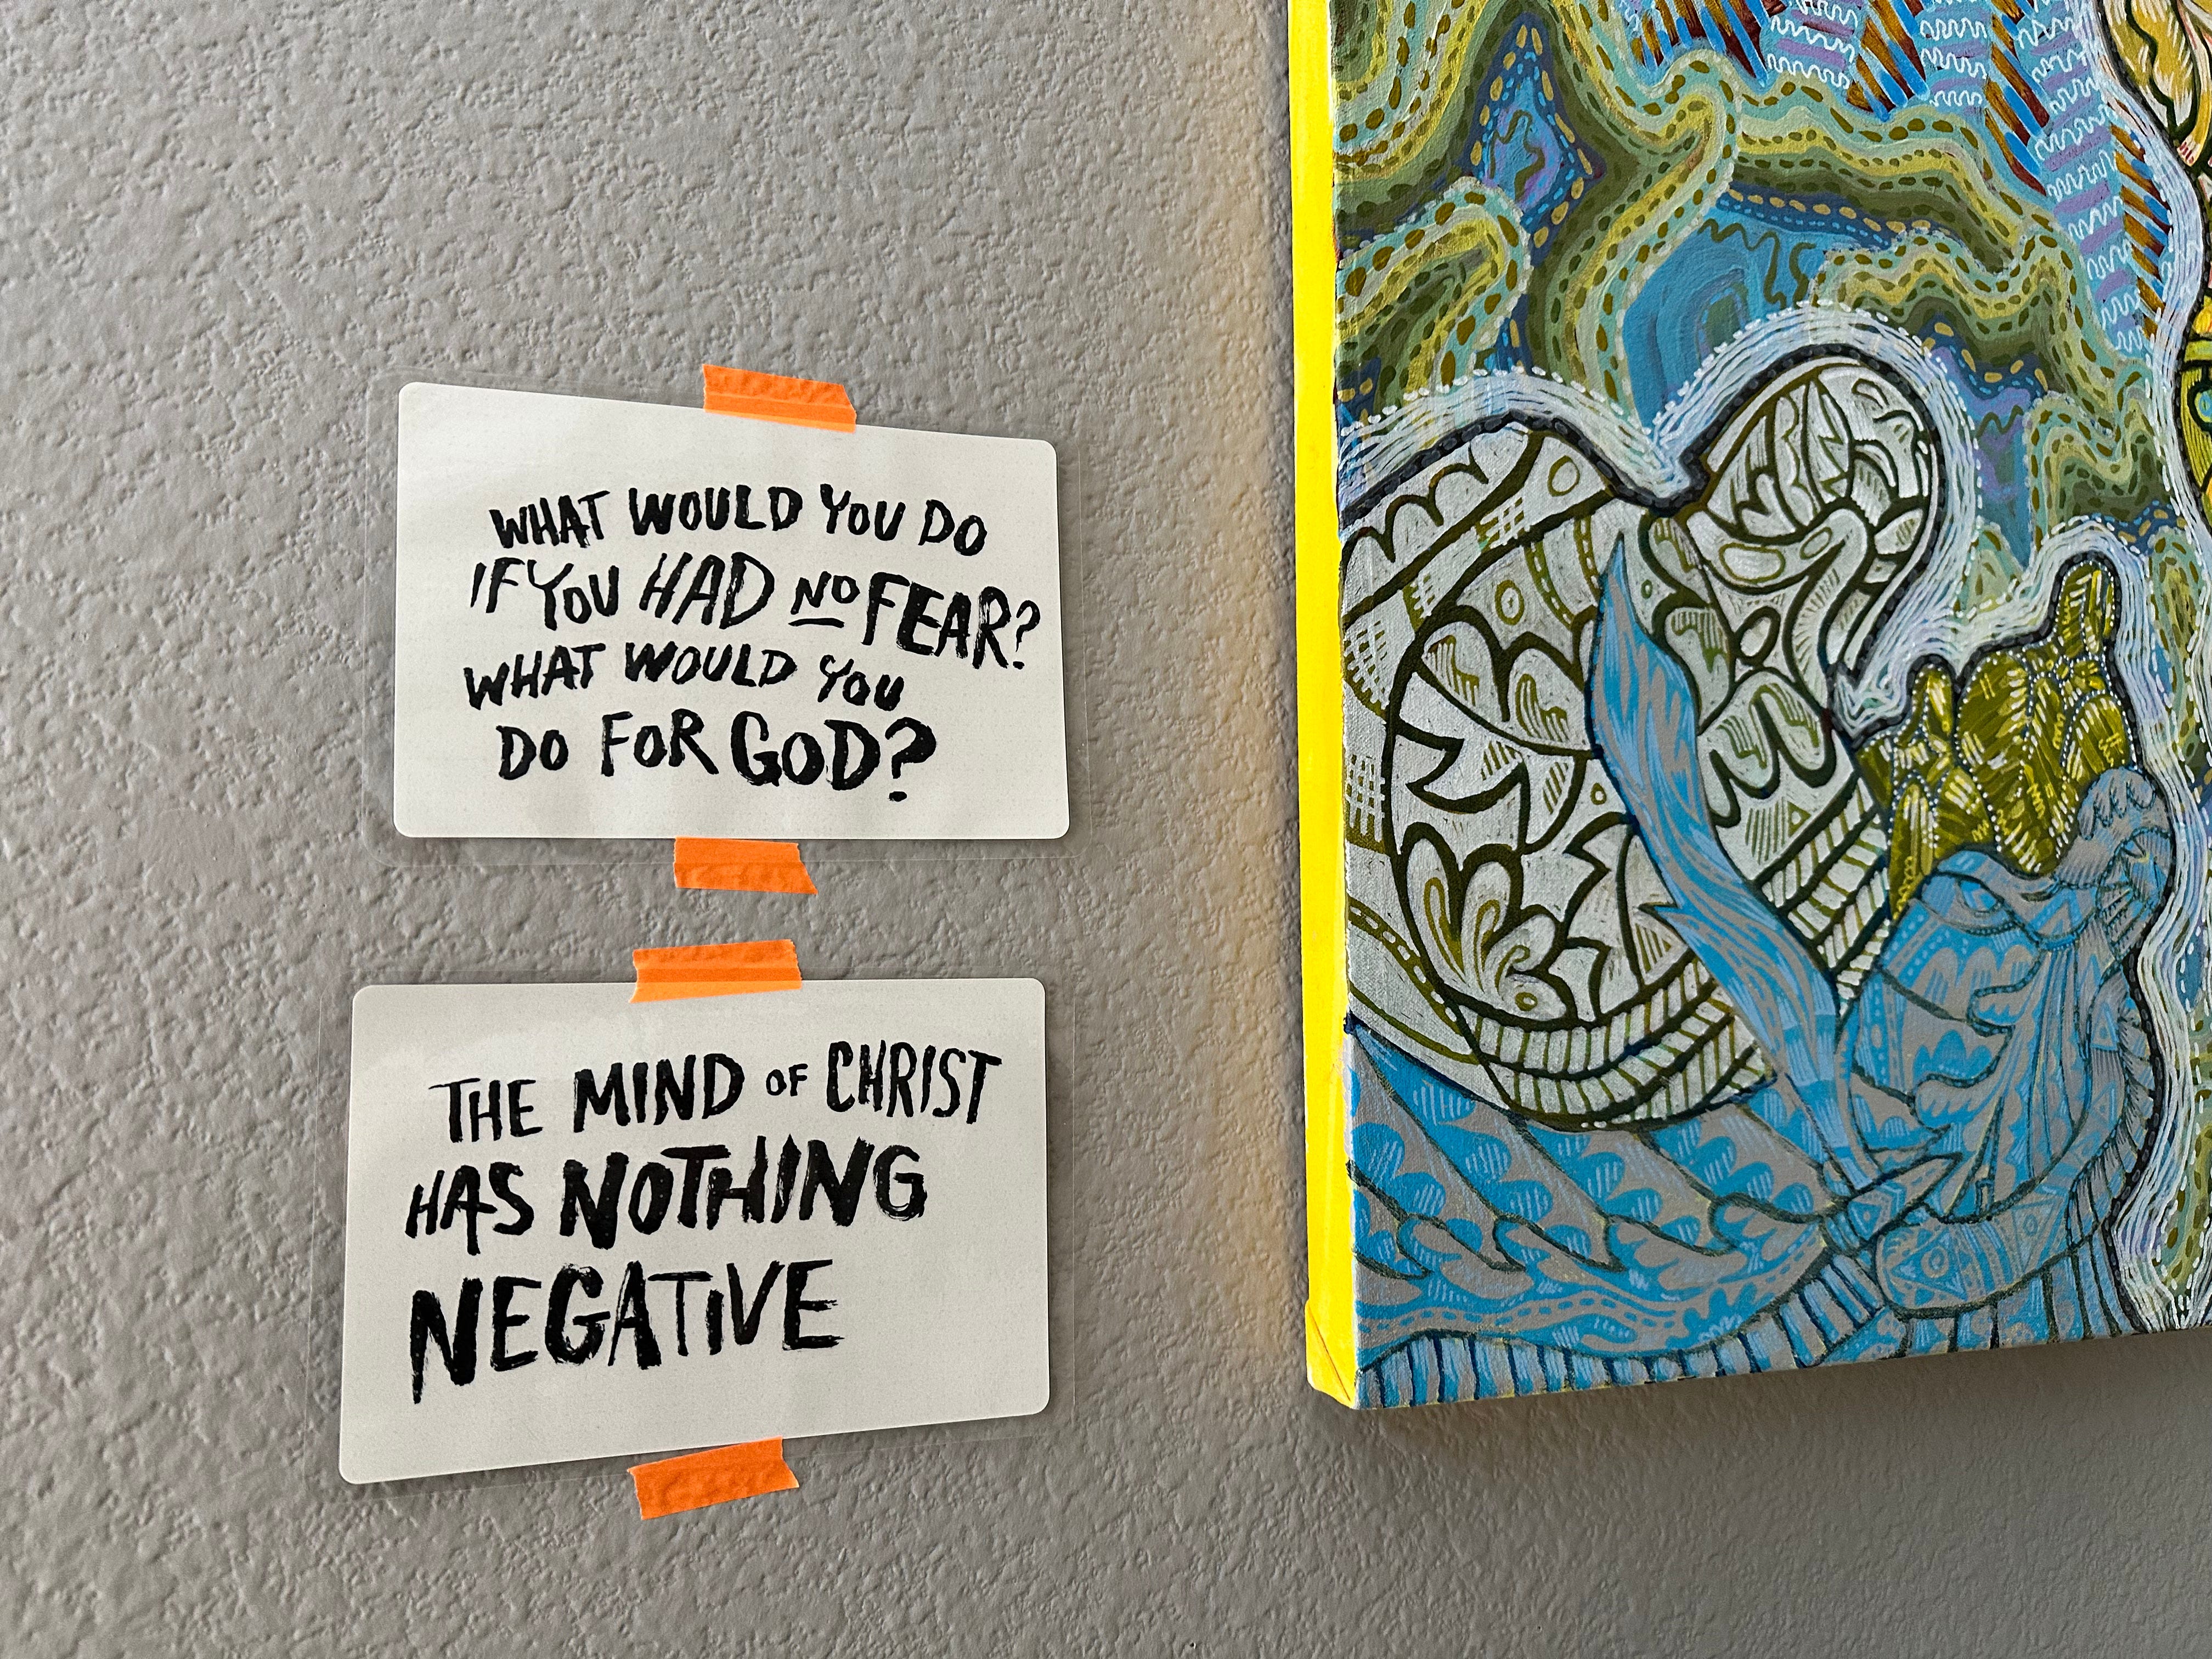 WHAT WOULD YOU DO
IF YOU HAD NO FEAR?
WHAT WOULD YOU
DO FOR GOD?
THE MIND OF CHRIST
HAS NOTHING
NEGATIVE